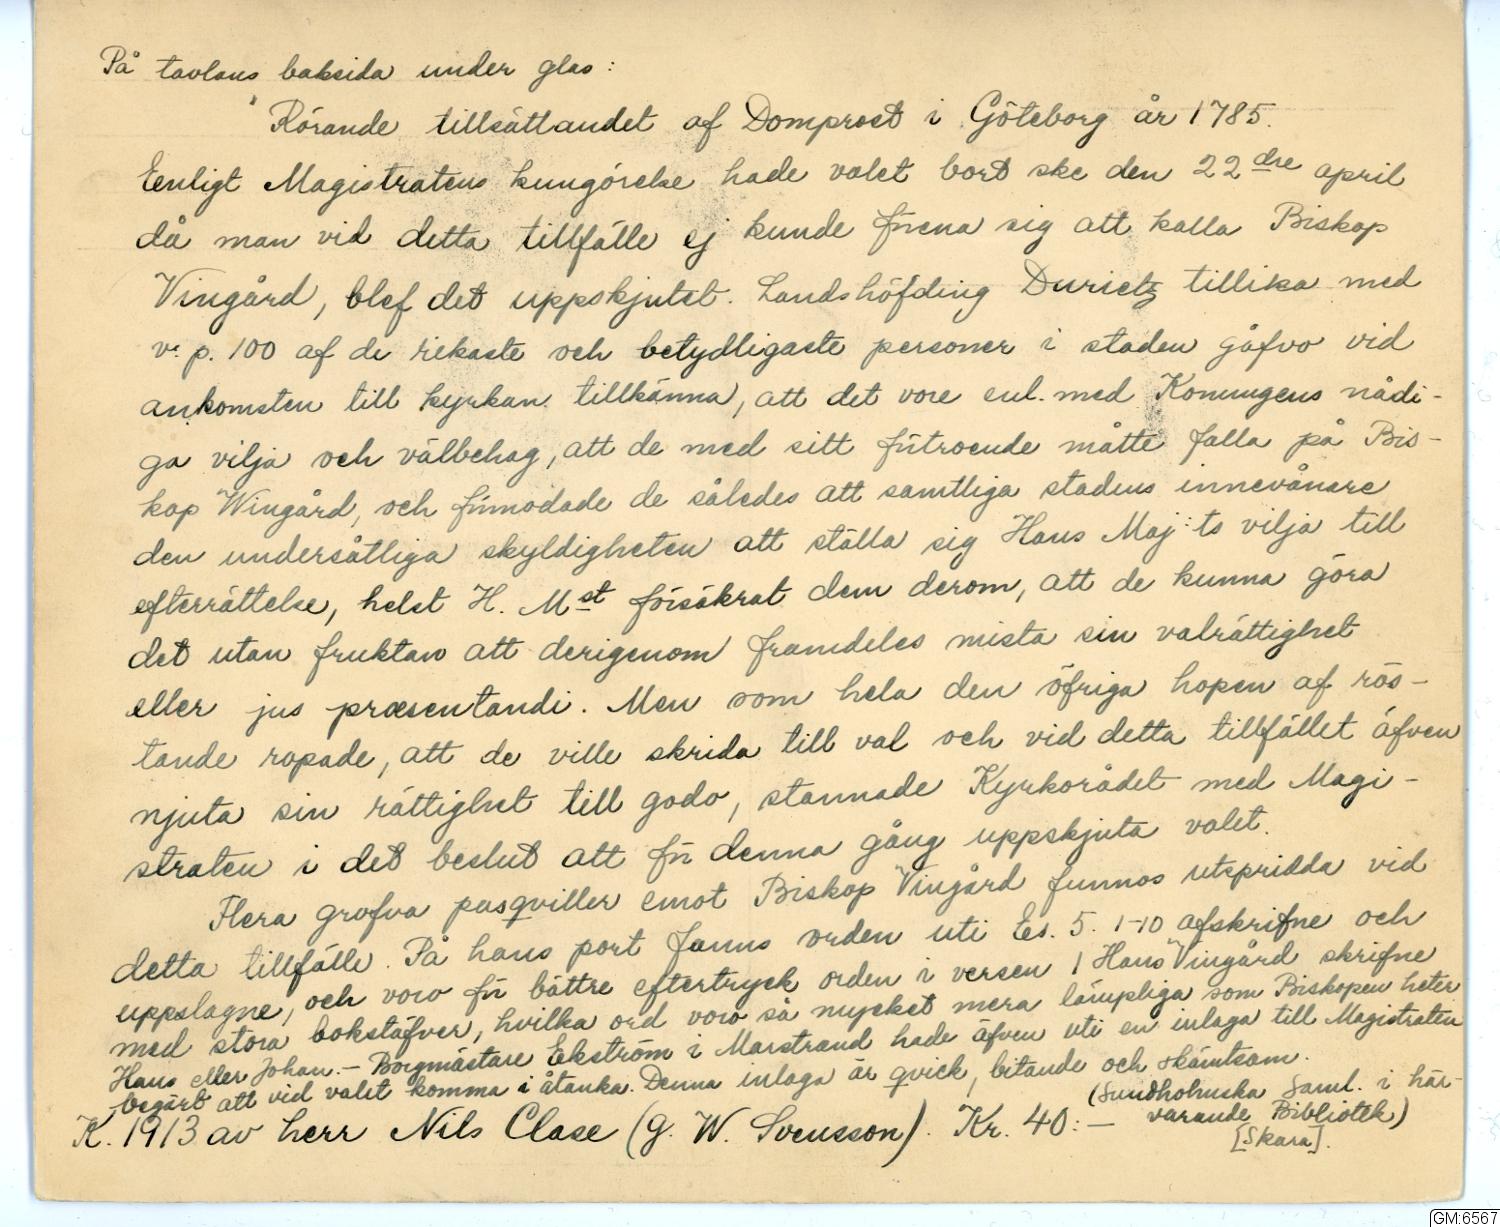 På tavlans baksida under glas:
"Rörande tillsättandet af Domprost i Göteborg år 1785.
Eenligt Magistratens kungörelse hade valet bort ske den 22dre april
då man vid detta tillfälle ej kunde förena sig att kalla Biskop
Vingård, blef det uppskjutet. Landshöfding Durietz tillika med
v. p. 100 af de rikaste och betydligaste personer i staden gåfvo vid
ankomsten till kyrkan tillkänna, att det vore enl. med Konungens nådi-
ga vilja och välbehag, att de med sitt förtroende måtte falla på Bis-
kop Wingård, och förmodade de således att samtliga stadens innevånare
den undersåtliga skyldigheten att ställa sig Hans Maj:ts vilja till
efterrättelse, helst H. Mst försäkrat dem derom, att de kunna göra
det utan fruktan att derigenom framdeles mista sin valrättighet
eller jus præsentandi. Men som hela den öfriga hopen af rös-
tande ropade, att de ville skrida till val och vid detta tillfället äfven
njuta sin rättighet till godo, stannade Kyrkorådet med Magi-
straten i det beslut att för denna gång uppskjuta valet.
Flera grofva pasqviller emot Biskop Vingård funnos utspridda vid
detta tillfälle. På hans port fanns orden uti Es. 5. 1-10 afskrifne och
uppslagne, och voro för bättre eftertryck orden i versen 1 Hans Vingård skrifne
med stora bokstäfver, hvilka ord voro så mycket mera lämpliga som Biskopen heter
Hans eller Johan. - Borgmästare Ekström i Marstrand hade äfven uti en inlaga till Magistraten
begärt att vid valet komma i åtanka. Denna inlaga är qvick, bitande och skämtsam.
(Sundholmska Saml. i här-
varande Bibliotek)
[Skara].
K. 1913 av herr Nils Clase (g. W. Svensson). Kr. 40:-
GM:6567